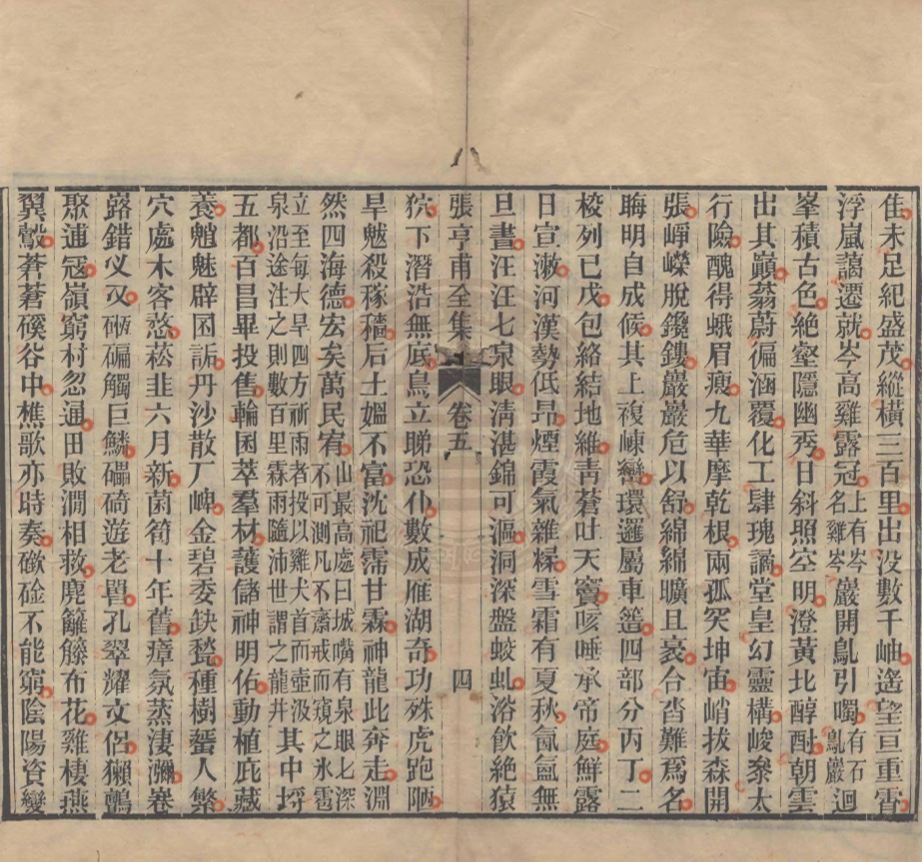 佳未足紀盛茂縱橫三百里出没數千岫遙望亘重霄
浮嵐藹遷就岑高雞露冠上有岑名雞岑巖開鳧引噣有石鳧巖迴
峯積古色絶壑隱幽秀日斜照空明澄黃北醇酎朝雲
出其巔蓊蔚徧涵覆化工肆瑰譎堂皇幻靈構峻黎太
行險醜得蛾眉瘦九華摩乾根兩孤突坤宙峭拔森開
張崢嶸脫鑱鏤巖巖危以舒綿綿曠且袤合沓難爲名
晦明自成候其上複崠巒環邏屬車簉四部分丙丁二
梭列已戊包絡結地維靑蒼吐天竇咳唾承帝庭鮮露
日宣漱河漢勢低昂煙霞氣雜糅雪霜有夏秋氤氳無
旦晝汪汪七泉眼淸湛錦可漚洞深盤蛟虬溶飮絶猿
張亨甫全集 卷五 四
狖下潛浩無底鳥立睇恐仆數成雁湖奇功殊虎跑陋
旱魃殺稼穡后土媼不富沈祀霈甘霖神龍此奔走淵
然四海德宏矣萬民宥山最高處曰城嘴有泉眼七深不可測凡不齋戒而窺之氷雹
立至每大旱四方祈雨者投以雞犬首而壺汲泉沿途注之則數百里霖雨隨沛世謂之龍井其中捊
五都百昌畢投售輪囷萃羣材護儲神明佑動植庇藏
養魈魅辟囦詬丹沙散厂崥金碧委缺甃種樹蜑人繁
穴處木客憗菘韭六月新菌筍十年舊瘴氛蒸淒瀰巷
路錯爻㕛硐碥觸巨鱗礧碕遊老罯孔翠耀文侶獺鷯
聚逋冦嶺窮村忽通田敗澗相救麂籬籐布花雞棲燕
翼鷇蒼蒼磎谷中樵歌亦時奏嶔硷不能窮陰陽資變